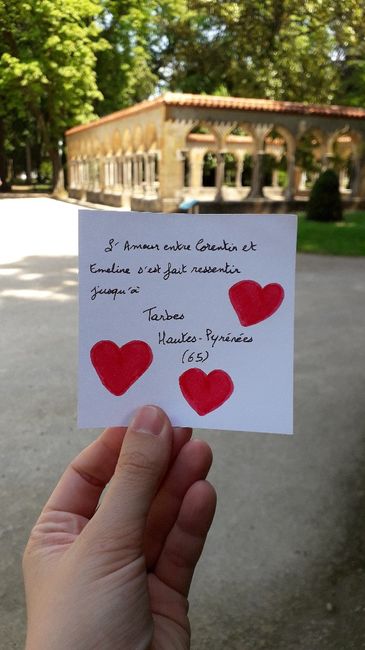 L'Amour entre Corentin et
Emeline s'est fait ressentir
jusqu'à
Tarbes
Hautes-Pyrénées
(65)